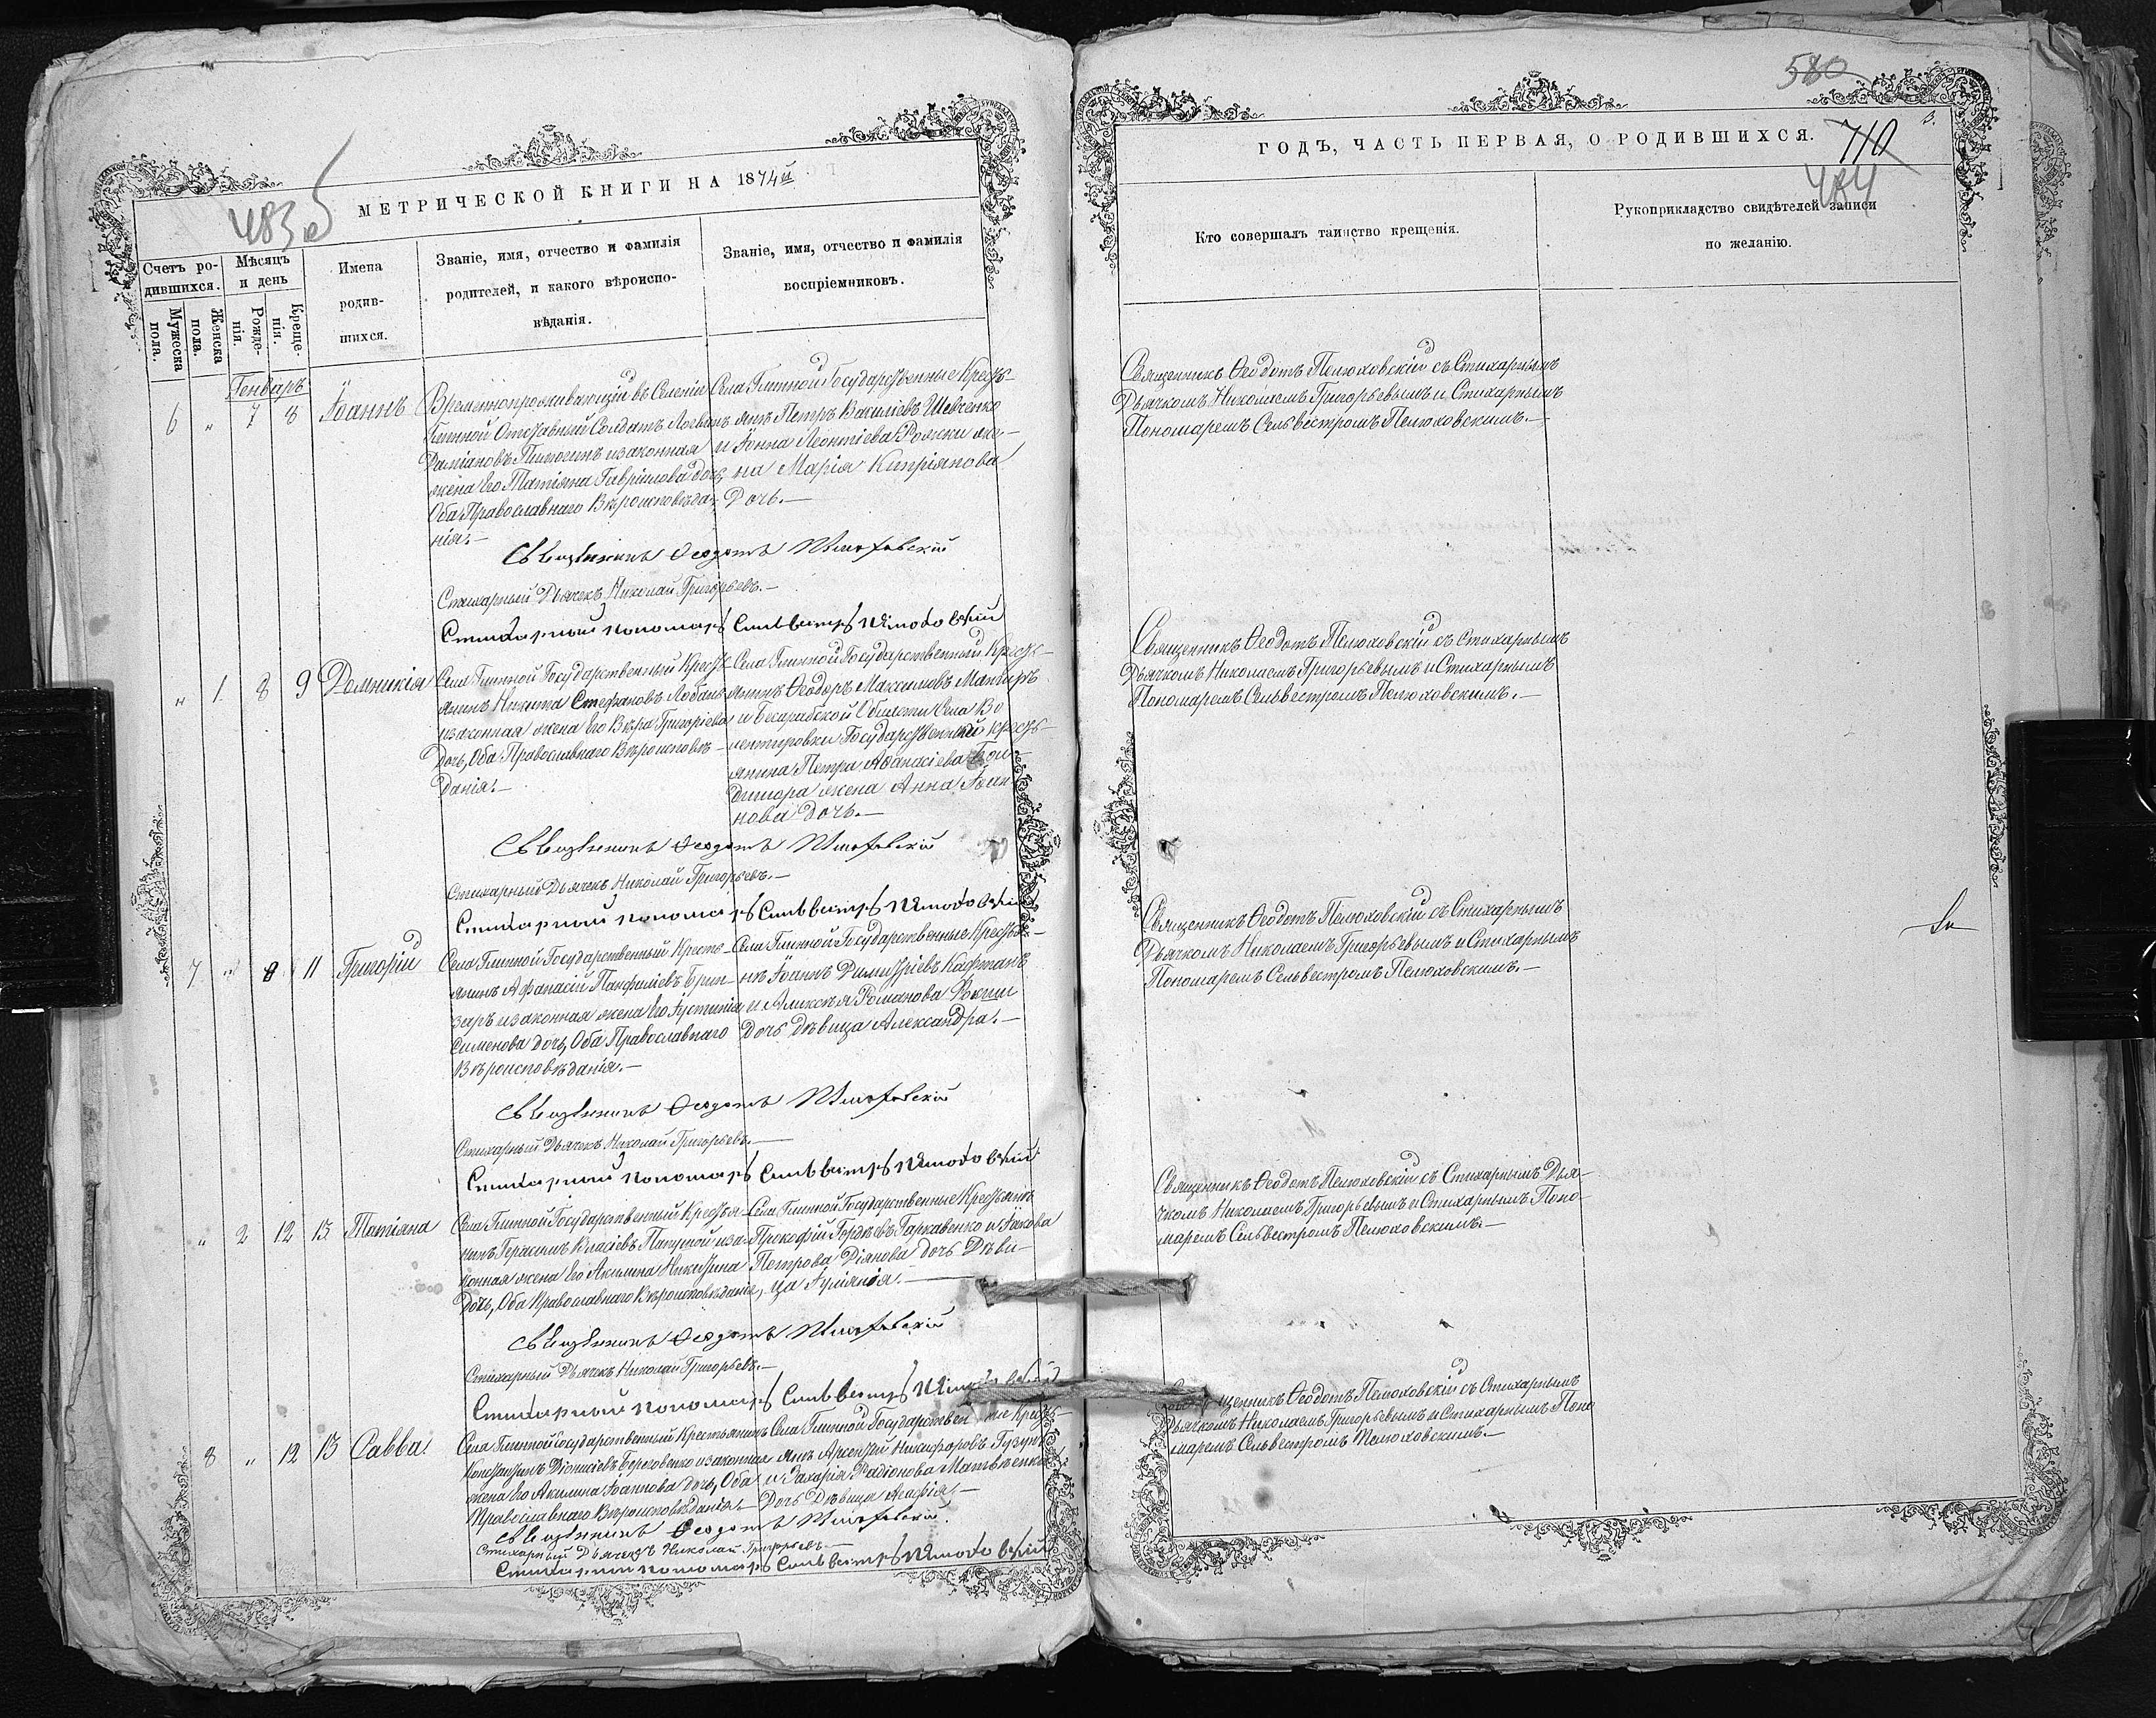 483 об
МЕТРИЧЕСКОЙ КНИГИ НА 1874й
Счетъ ро-
дившихся.
Мужеска
пола.
Женска
пола.
Мѣсяцъ
и день
Рожде-
нія.
Креще-
нія.
Имена
родив-
шихся.
Званіе, имя, отчество и фамилія
родителей, и какого вѣроиспо-
вѣданія.
Званіе, имя, отчество и фамилія
воспріемниковъ.
Генварь
6 " 7 8 Іоаннъ
Временнопроживающій въ Селеніи
Глинной Отставный Солдатъ Логвинъ
Даміановъ и законная
жена Его Татіяна Гавріилова дочь,
Оба Православнаго Вѣроисповѣда-
нія.—
Села Глинной Государственные Кресть-
яне Петръ Василіевъ Шевченко
и Іонна Леонтіева жe-
на Марія Кипріянова
Дочь.—
Священникъ Ѳеодотъ Пелюховскій
Стихарный Дьячекъ Николай Григорьевъ.—
Стихарный пономарь Сильвестръ Пелюховскій
" 1 8 9 Домникія
Села Глинной Государственный Кресть-
янинъ Никита Стефановъ Лобань
и законная жена Его Вѣра Григоріева
Дочь, Оба Православнаго Вѣроисповѣ-
данія.—
Села Глинной Государственный Кресть-
янинъ Ѳеодоръ Максимовъ
и Бесарабской Области Села Во
лентировки Государственный кресть-
янина Петра Афанасіева
жена Анна Іоан
нова Дочь.—
Священникъ Ѳеодотъ Пелюховскій
Стихарный Дьячекъ Николай Григорьевъ.—
Стихарный пономарь Сильвестръ Пелюховскій
7 " 8 11 Григорій
Села Глинной Государственный Кресть-
янинъ Афанасій Панфиліевъ Брин-
зарь и законная жена Его Іустинія
Симеонова Дочь, Оба Православнаго
Вѣроисповѣданія.—
Села Глинной Государственные Крестья-
нъ Іоаннъ Димитріевъ Кафтанъ
и Алексѣя Романова
Дочь дѣвица Александра.—
Священникъ Ѳеодотъ Пелюховскій
Стихарный Дьячекъ Николай Григорьевъ.—
Стихарный пономарь Сильвестръ Пелюховскій
" 2 12 13 Татіяна
Села Глинной Государственный Крестья-
нинъ Герасимъ Власіевъ и за-
конная жена Его Акилина Никитина
Дочь, Оба Православнаго Вѣроисповѣданія,
Села Глинной Государственные Крестьяни
Прокофій Гордѣевъ Гаркавенко и Іакова
Петрова Діянова дочь Дѣви-
ца Іуліянія.—
Священникъ Ѳеодотъ Пелюховскій
Стихарный Дьячекъ Николай Григорьевъ.—
Стихарный пономарь Сильвестръ Пелюховскій
8 " 12 13 Савва
Села Глинной Государственный Крестьянинъ
Константинъ Діонисіевъ Береговенко и законная
жена Его Акилина Іоаннова Дочь, Оба
Православнаго Вѣроисповѣданія.—
Села Глинной Государственные Кресть-
янъ Арсентій Никифоровъ Гузунъ
и Захарія Радіонова Матвѣенка
Дочь Дѣвица
Священникъ Ѳеодотъ Пелюховскій.
Стихарный Дьячекъ Николай Григорьевъ.—
Стихарный пономарь Сильвестръ Пелюховскій
580
710
484
ГОДЪ, ЧАСТЬ ПЕРВАЯ, О РОДИВШИХСЯ.
Кто совершалъ таинство крещенія.
Рукоприкладство свидѣтелей записи
по желанію.
Священникъ Ѳеодотъ Пелюховскій съ Стихарнымъ
Дьячкомъ Николаемъ Григорьевымъ и Стихарнымъ
Пономаремъ Сельвестромъ Пелюховскимъ.—
Священникъ Ѳеодотъ Пелюховскій съ Стихарнымъ
Дьячкомъ Николаемъ Григорьевымъ и Стихарнымъ
Пономаремъ Сельвестромъ Пелюховскимъ.—
Священникъ Ѳеодотъ Пелюховскій съ Стихарнымъ
Дьячкомъ Николаемъ Григорьевымъ и Стихарнымъ
Пономаремъ Сельвестромъ Пелюховскимъ.—
Священникъ Ѳеодотъ Пелюховскій съ Стихарнымъ Дья-
чкомъ Николаемъ Григорьевымъ и Стихарнымъ Поно-
маремъ Сельвестромъ Пелюховскимъ.—
Священникъ Ѳеодотъ Пелюховскій съ Стихарнымъ
Дьячкомъ Николаемъ Григорьевымъ и Стихарнымъ Поно
маремъ Сельвестромъ Пелюховскимъ.—